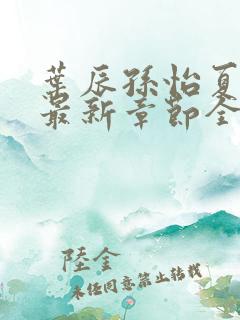 葉辰孫怡夏
最新章節全
陸金
未经同意禁止转载